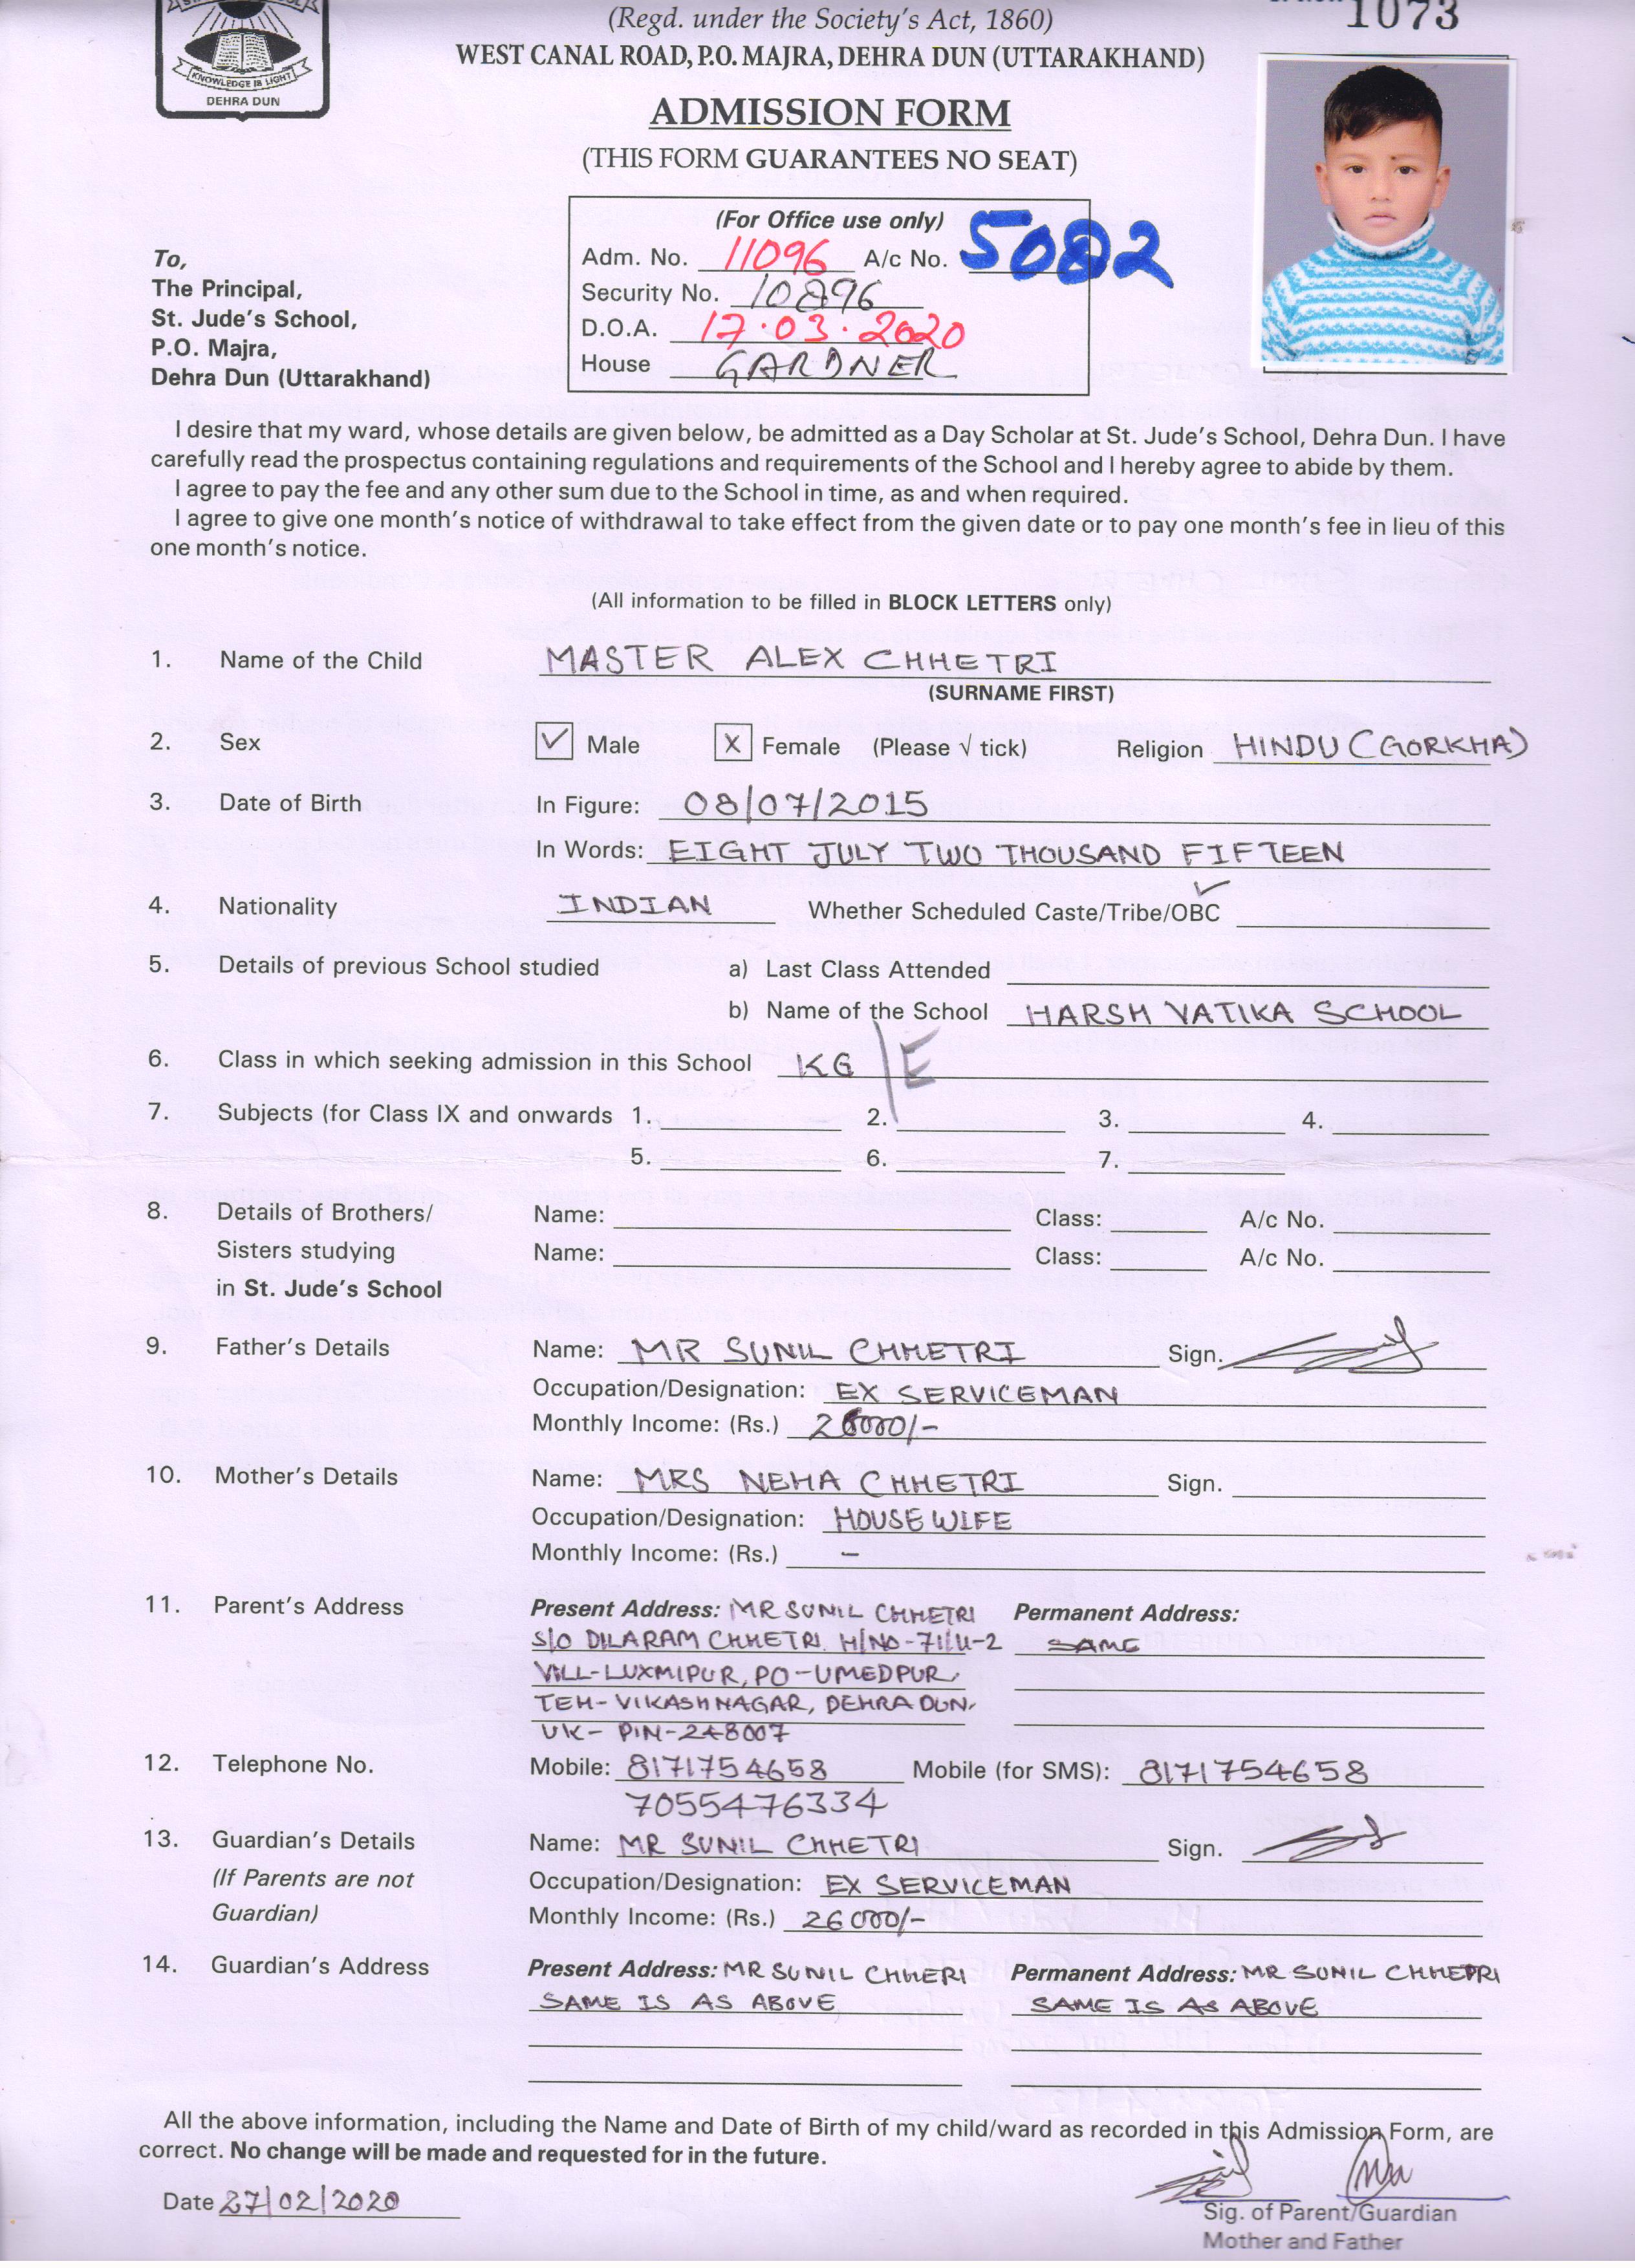 KNOWLEDGE IS LIGHT
DEHRA DUN
(Regd. under the Society's Act, 1860)
1073
WEST CANAL ROAD, P.O. MAJRA, DEHRA DUN (UTTARAKHAND)
ADMISSION FORM
(THIS FORM GUARANTEES NO SEAT)
(For Office use only)
Adm. No. 11096 A/c No. 5082
Security No. 10896
D.O.A. 17.03.2020
House GARDNER
To,
The Principal,
St. Jude's School,
P.O. Majra,
Dehra Dun (Uttarakhand)
I desire that my ward, whose details are given below, be admitted as a Day Scholar at St. Jude's School, Dehra Dun. I have
carefully read the prospectus containing regulations and requirements of the School and I hereby agree to abide by them.
I agree to pay the fee and any other sum due to the School in time, as and when required.
I agree to give one month's notice of withdrawal to take effect from the given date or to pay one month's fee in lieu of this
one month's notice.
(All information to be filled in BLOCK LETTERS only)
1. Name of the Child MASTER ALEX CHHETRI
(SURNAME FIRST)
2. Sex ✓ Male X Female (Please √ tick) Religion HINDU (GORKHA)
3. Date of Birth In Figure: 08/07/2015
In Words: EIGHT JULY TWO THOUSAND FIFTEEN
4. Nationality INDIAN Whether Scheduled Caste/Tribe/OBC ✓
5. Details of previous School studied a) Last Class Attended
b) Name of the School HARSH VATIKA SCHOOL
6. Class in which seeking admission in this School KG / E
7. Subjects (for Class IX and onwards 1. 2. 3. 4.
5. 6. 7.
8. Details of Brothers/ Name: Class: A/c No.
Sisters studying Name: Class: A/c No.
in St. Jude's School
9. Father's Details Name: MR SUNIL CHHETRI Sign.
Occupation/Designation: EX SERVICEMAN
Monthly Income: (Rs.) 26000/-
10. Mother's Details Name: MRS NEHA CHHETRI Sign.
Occupation/Designation: HOUSE WIFE
Monthly Income: (Rs.) –
11. Parent's Address Present Address: MR SUNIL CHHETRI Permanent Address:
S/O DILARAM CHHETRI H/NO-71/U-2 SAME
VILL-LUXMIPUR, PO-UMEDPUR,
TEH-VIKASHNAGAR, DEHRA DUN,
UK- PIN-248007
12. Telephone No. Mobile: 8171754658 Mobile (for SMS): 8171754658
7055476334
13. Guardian's Details Name: MR SUNIL CHHETRI Sign.
(If Parents are not Occupation/Designation: EX SERVICEMAN
Guardian) Monthly Income: (Rs.) 26000/-
14. Guardian's Address Present Address: MR SUNIL CHHERI Permanent Address: MR SUNIL CHHETRI
SAME IS AS ABOVE SAME IS AS ABOVE
All the above information, including the Name and Date of Birth of my child/ward as recorded in this Admission Form, are
correct. No change will be made and requested for in the future.
Date 27/02/2020
Sig. of Parent/Guardian
Mother and Father